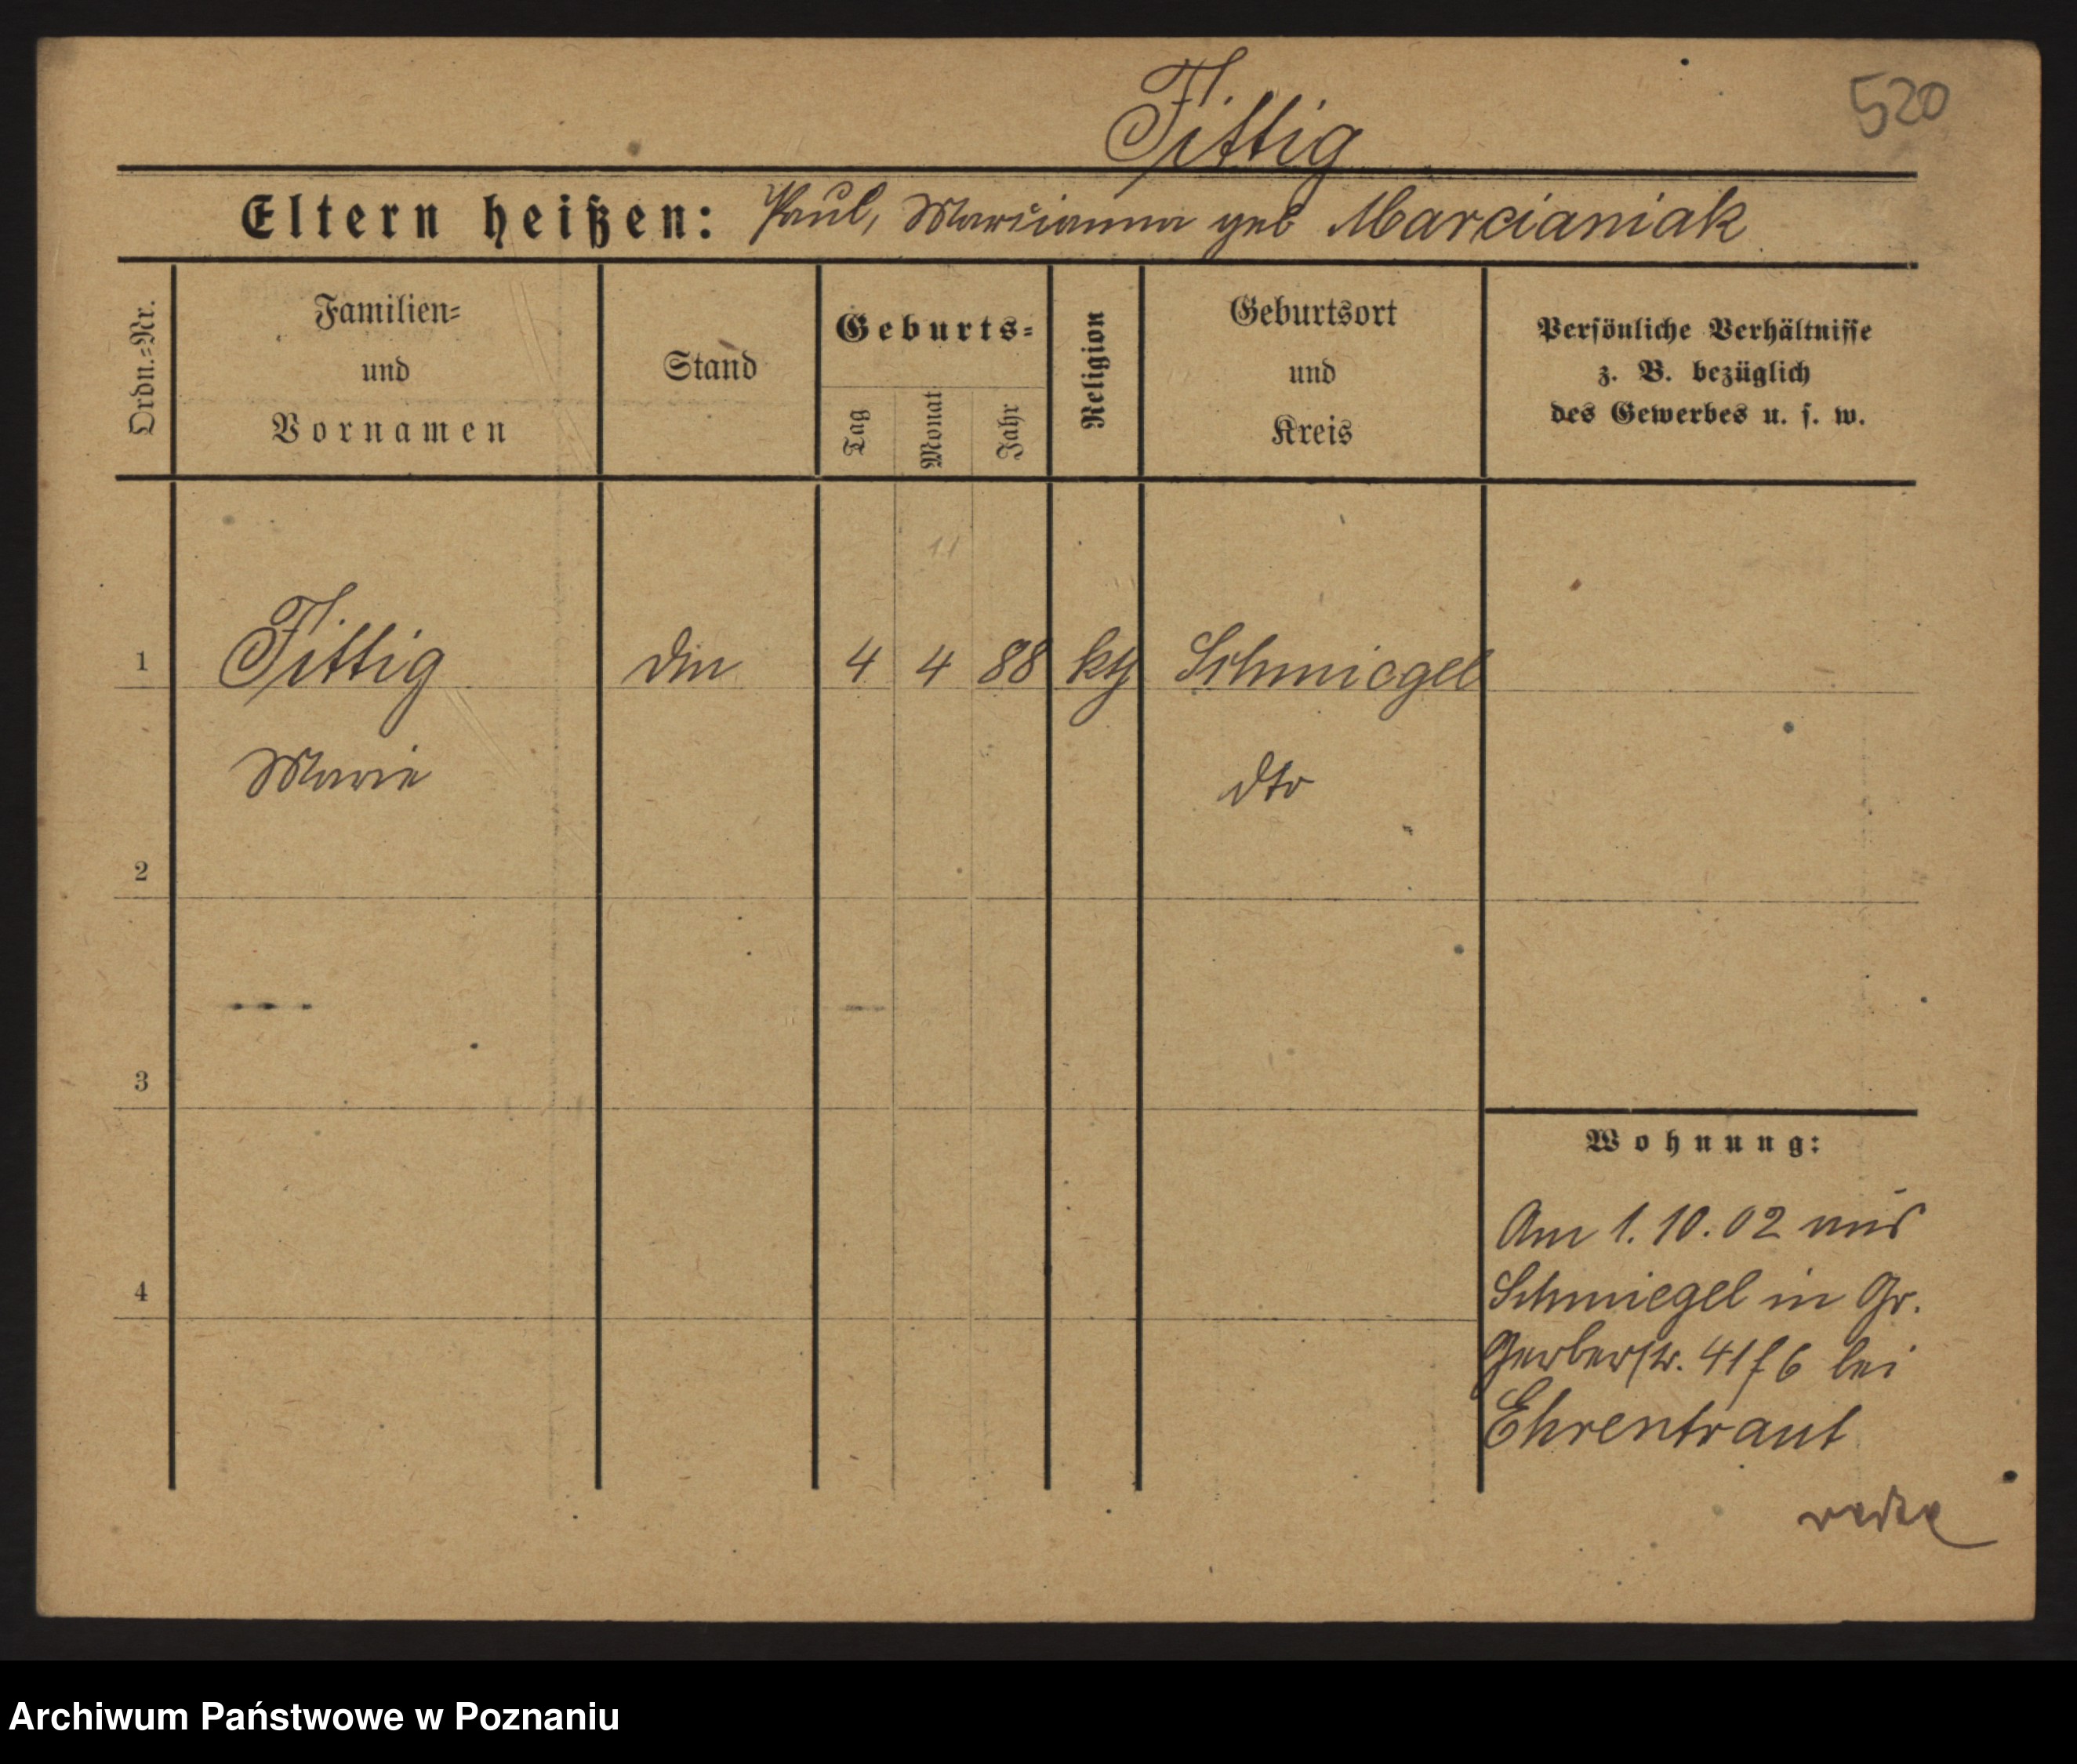 520
Fittig
Eltern heißen: Paul, Marianna geb Marcianiak
Ordn.=Nr.
Familien=
und
Vornamen
Stand
Geburts=
Tag
Monat
Jahr
Religion
Geburtsort
und
Kreis
Persönliche Verhältnisse
z. B. bezüglich
des Gewerbes u. s. w.
1 Fittig 4 4 88 kth Schmiegel
Marie dto
2
3
4
Wohnung:
Am 1.10.02 aus
Schmiegel in Gr.
Gerberstr. 41 bei
Ehrentraut
Archiwum Państwowe w Poznaniu